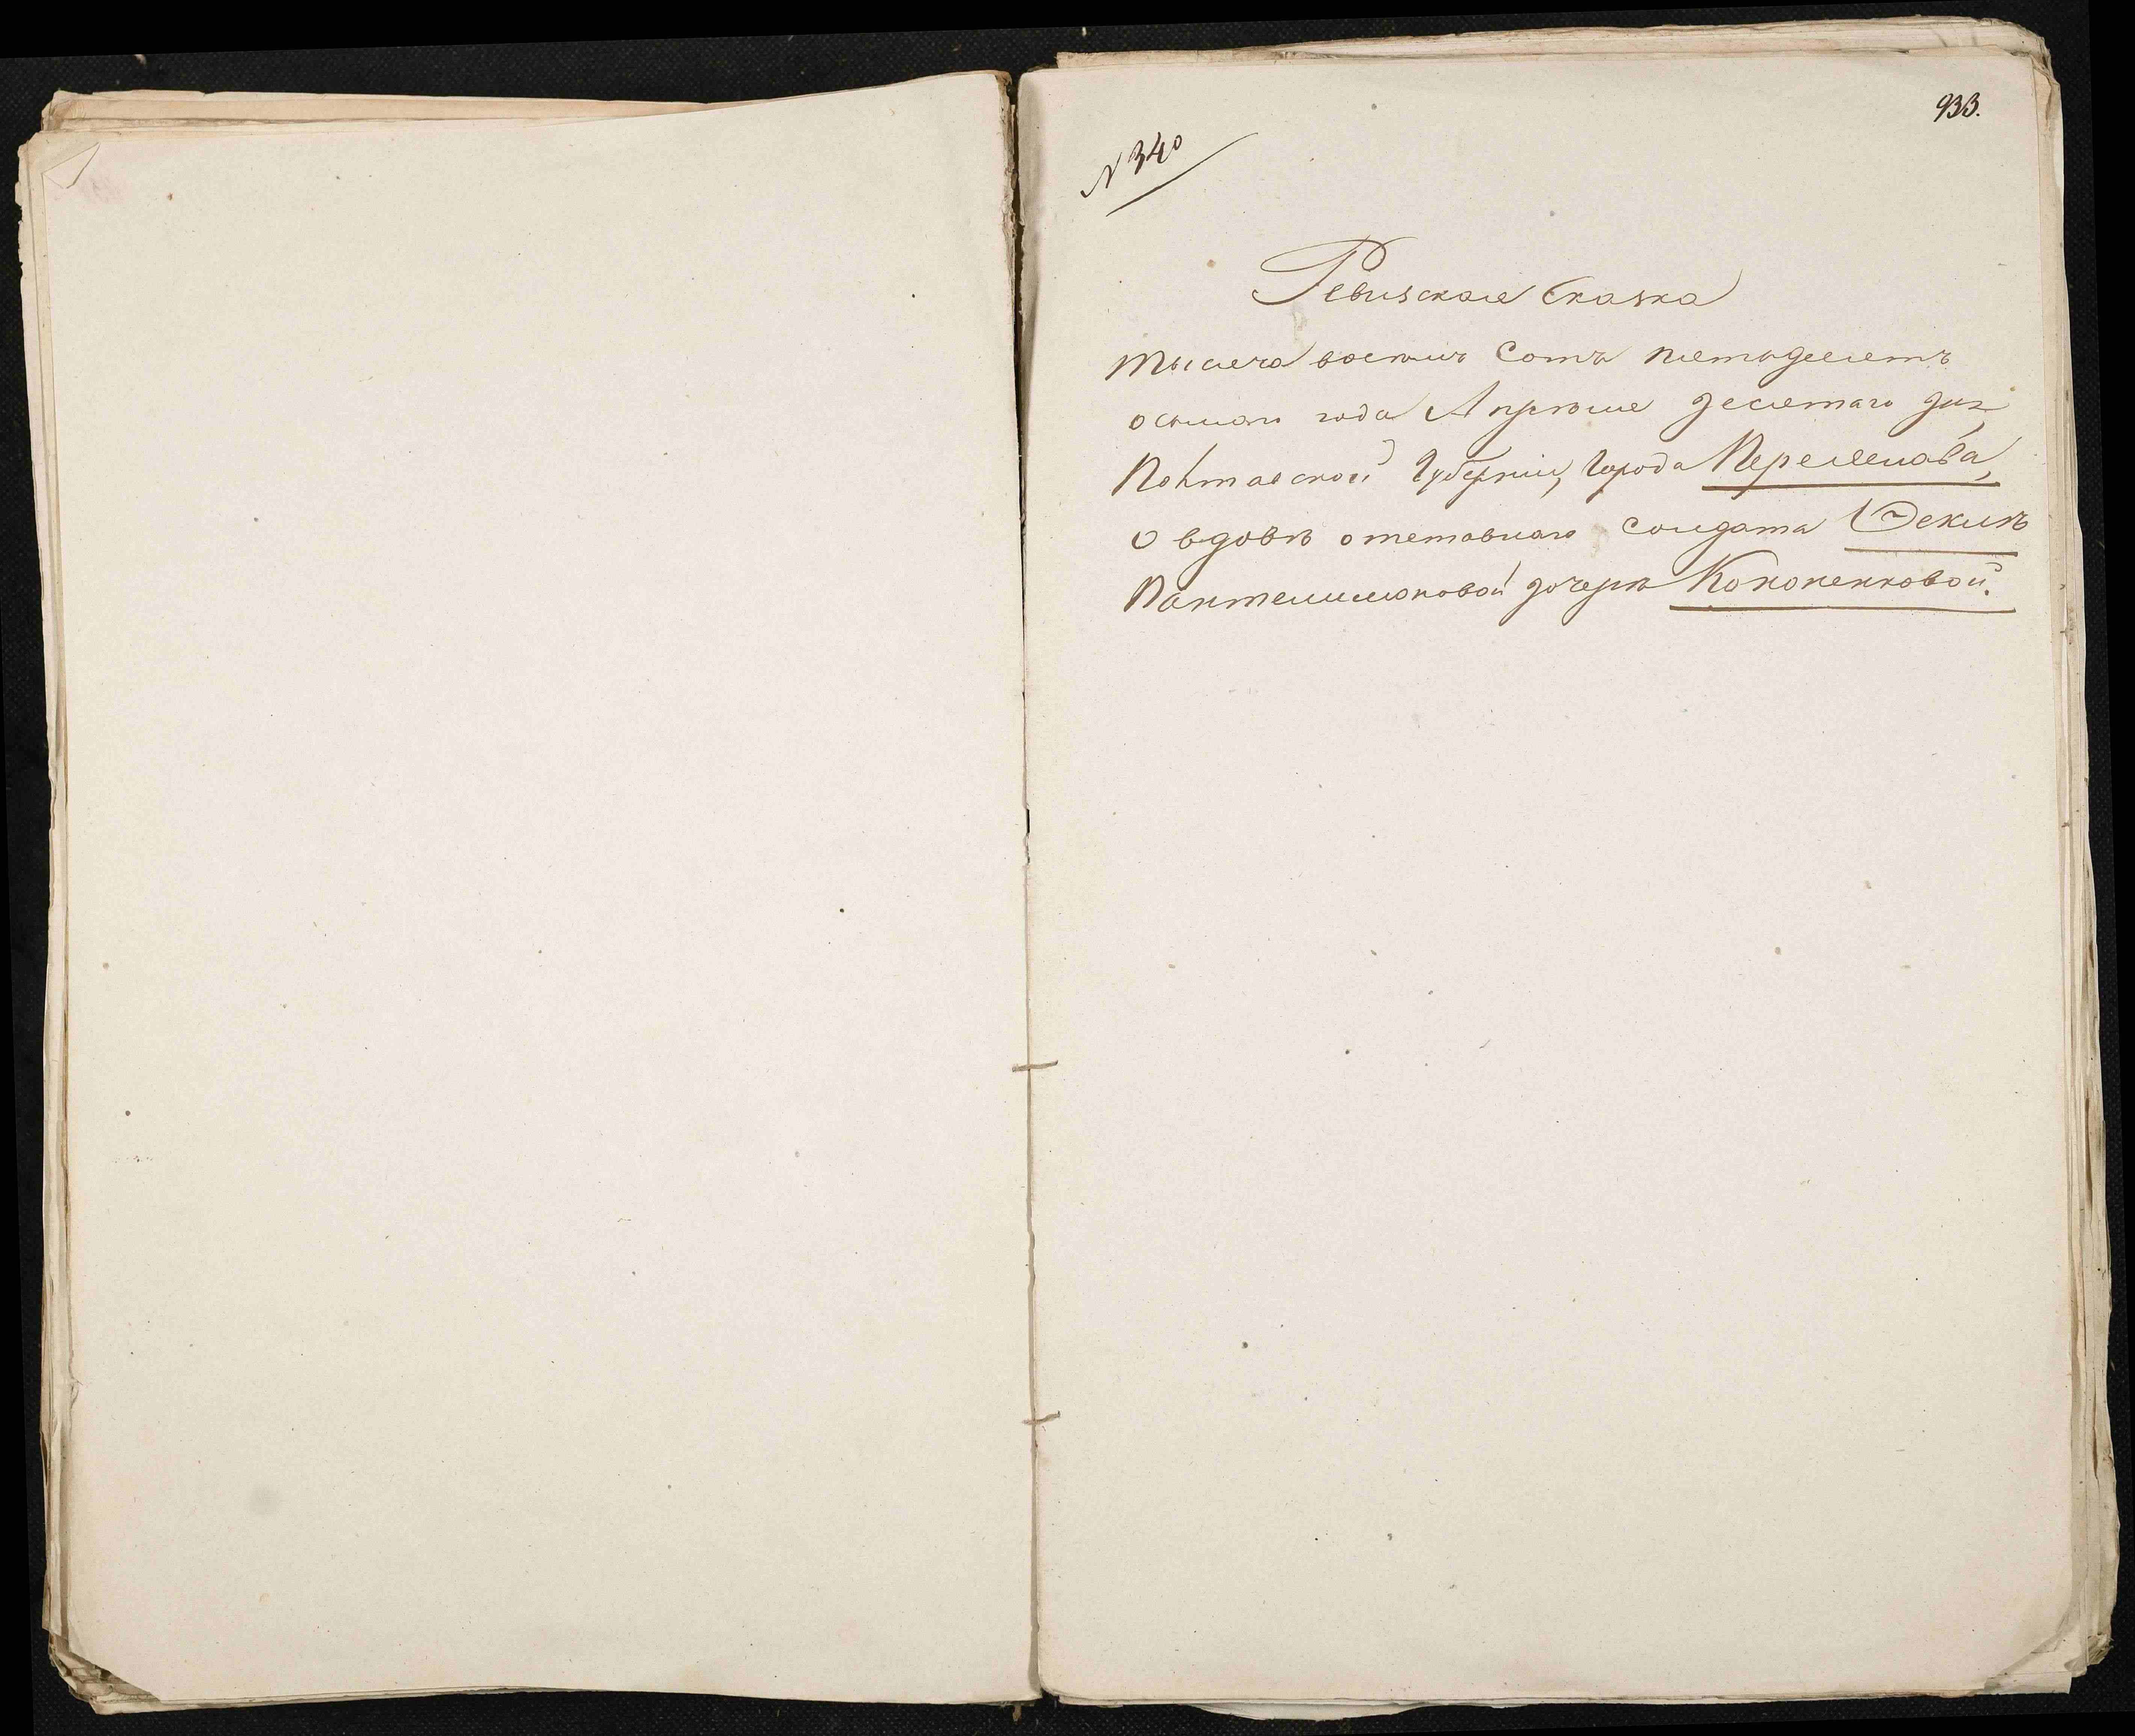 933.
N 340
Ревизская Сказка
тысяча восемь Сотъ пятьдесятъ
осьмаго года Апреля десятаго дня
Полтавской Губерніи, Города Переяслава,
о вдовѣ отставнаго солдата
Пантелимоновой дочери Кононенковой.